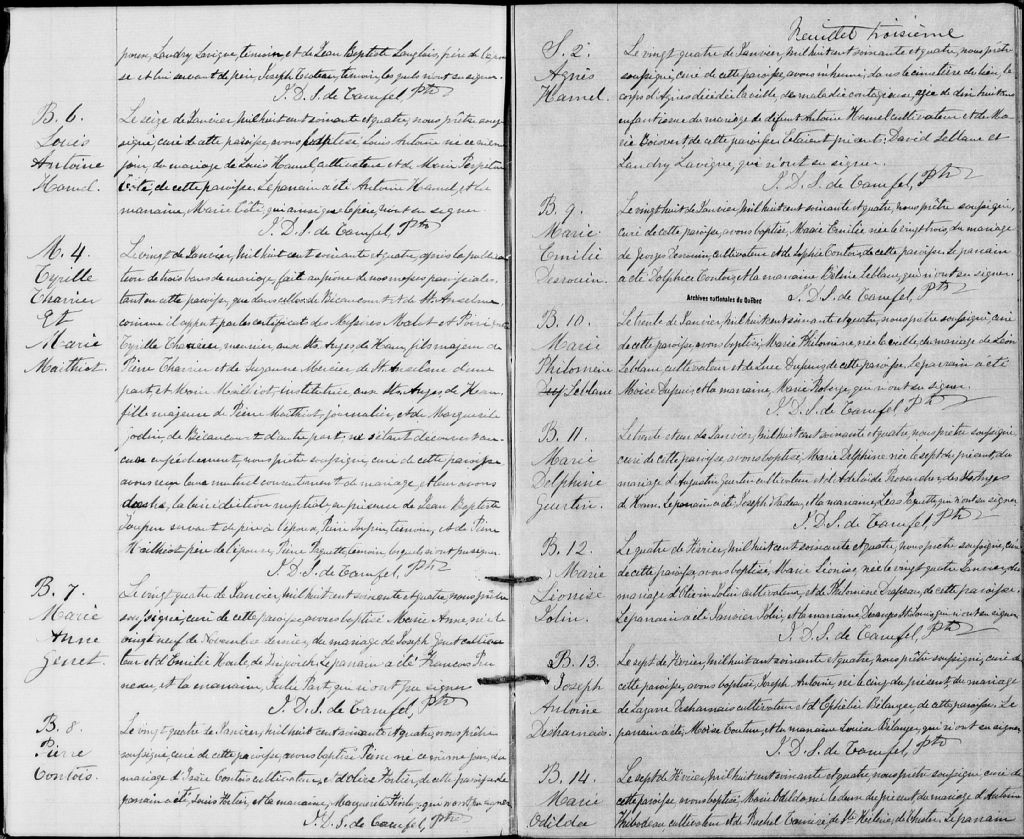 poux, Landry Lavigne, temoin, et de Jean Baptiste Langlois, père de l'épou
se et lui servant de père, Joseph temoin, les quels n'ont su signer.
J. D. S. de Camfel, Ptre
B. 6.
Louis
Antoine
Hamel.
Le seize de Janvier, mil huit cent soixante et quatre, nous prêtre sous
signé, curé de cette paroisse, avons baptisé Louis Antoine né ce même
jour, du mariage de Louis Hamel, cultivateur et de Marie Perpetue
Coté, de cette paroisse. Le parrain a été Antoine Hamel, et la
marraine, Marie Coté, qui ainsi que le père, n'ont su signer.
J. D. S. de Camfel, Ptre
M. 4
Cyrille
Charrier
Et
Marie
Mathiot.
Le vingt de Janvier, mil huit cent soixante et quatre, après la publica
tion de trois bans de mariage, fait au prone de nos messes paroissiales
tant en cette paroisse, que dans celles de Bécancourt et de St. Anselme,
comme il appert par les certificats des Messires Malot et Poirier
Cyrille Charrier, meunier, aux Sts. Anges de Ham, fils majeur de
Pierre Charrier et de Suzanne Mercier de St. Anselme d'une
part, et Marie Mailliot, institutrice aux Sts. Anges de Ham,
fille majeure de Pierre Mathiot, journalier, et de Marguerite
jodin, de Bécancourt d'autre part; ne s'étant découvert au
cun empêchement, nous prêtre soussigné, curé de cette paroisse
avons reçu leur mutuel consentement de mariage, et leur avons
donné la bénédiction nuptiale en présence de Jean Baptiste
servant de père à l'époux, Pierre temoin, et de Pierre
Mailhiot père de l'épouse, Pierre Paquette, temoin lesquels n'ont pu signer.
J. D. S. de Camfel, Ptre
B. 7.
Marie
Anne
Genet.
Le vingt quatre de Janvier, mil huit cent soixante et quatre, nous prêtre
soussigné, curé de cette paroisse, avons baptisé Marie Anne née le
vingt neuf de Novembre dernier, du mariage de Joseph cultiva
teur et d'Emilie Houle, de Tingwick. Le parrain a été François
et la marraine, Julie Part, qui n'ont pu signer
J. D. S. de Camfel, Ptre
B. 8.
Pierre
Contois.
Le vingt quatre de Janvier, mil huit cent soixante et quatre, nous prêtre
soussigné, curé de cette paroisse, avons baptisé Pierre né ce même jour, du
mariage d'Isaïe Contois cultivateur, et d'Olive Fortier, de cette paroisse. Le
parrain a été Louis Fortier, et la marraine, Marguerite qui n'ont pu signer
J. D. S. de Camfel, Ptre
Feuillet troisième
S. 2
Agnès
Hamel.
Le vingt quatre de Janvier, mil huit cent soixante et quatre, nous prêtre
soussigné, curé de cette paroisse, avons inhumé, dans le cimetière du lieu, le
corps d'Agnès décédée la veille, de maladie contagieuse, agée de dix huit ans
enfant issue du mariage de défunt Antoine Hamel cultivateur et de Ma
rie de cette paroisse. Etaient présents; David Leblanc et
Landry Lavigne, qui n'ont su signer.
J. D. S. de Camfel, Ptre
B. 9.
Marie
Emilie
Derouin.
Le vingt huit de Janvier, mil huit cent soixante et quatre, nous prêtre soussigné,
curé de cette paroisse, avons baptisé, Marie Emilie née le vingt trois, du mariage
de George Derouin, cultivateur et de Sophie Contois, de cette paroisse. Le parrain
a été Delphice Contois, et la marraine Leblanc, qui n'ont su signer.
Archives nationales du Québec
J. D. S. de Camfel, Ptre
B. 10.
Marie
Philomene
Leblanc
Le trente de Janvier, mil huit cent soixante et quatre, nous prêtre soussigné, curé
de cette paroisse, avons baptisé, Marie Philomène, née la veille, du mariage de Léon
Leblanc cultivateur et de Luce Dupuis, de cette paroisse. Le parrain a été
Moïse Dupuis, et la marraine, Marie Roberge, qui n'ont su signer.
J. D. S. de Camfel, Ptre
B. 11.
Marie
Delphine
Guertin.
Le trente et un de Janvier, mil huit cent soixante et quatre, nous prêtre soussigné
curé de cette paroisse, avons baptisé, Marie Delphine née le sept du présent, du
mariage d'Augustin Guertin cultivateur et d'Adelaïde Provencher, des Sts Anges
d'Ham. Le parrain a été Joseph Nadeau, et la marraine, Lea Paquette, qui n'ont su signer
J. D. S. de Camfel, Ptre
B. 12.
Marie
Lionise
Jolin.
Le quatre de Fevrier, mil huit cent soixante et quatre, nous prêtre soussigné, curé
de cette paroisse, avons baptisé, Marie Léonise, née le vingt quatre Janvier, du
mariage d'Olivier Jolin cultivateur, et de Philomene Drapeau, de cette paroisse.
Le parrain a été Janvier Jolin, et la marraine qui n'ont su signer.
J. D. S. de Camfel, Ptre
B. 13.
Joseph
Antoine
Desharnais.
Le sept de Fevrier, mil huit cent soixante et quatre, nous prêtre soussigné, curé de
cette paroisse, avons baptisé, Joseph Antoine, né le cinq du présent, du mariage
de Lazare Desharnais cultivateur et d'Ophélie Bélanger, de cette paroisse. Le
parrain a été, Moïse Couture, et la marraine Louise Bélanger, qui n'ont su signer
J. D. S. de Camfel, Ptre
B. 14.
Marie
Odilda
Le sept de Fevrier, mil huit cent soixante et quatre, nous prêtre soussigné curé de
cette paroisse, avons baptisé, Marie Odilda née le deux du présent du mariage d'Antoine
Thibodeau cultivateur et de Rachel de Ste Hélène, de Chester. Le parrain